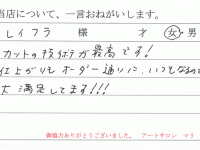 当店について、一言おねがいします。
レイフラ 様 才 女・男
カットの技術が最高です!
仕上がりもオーダー通りに、いつもなので
大満足してます!!!
御協力ありがとうございました。 アートサロン マリ